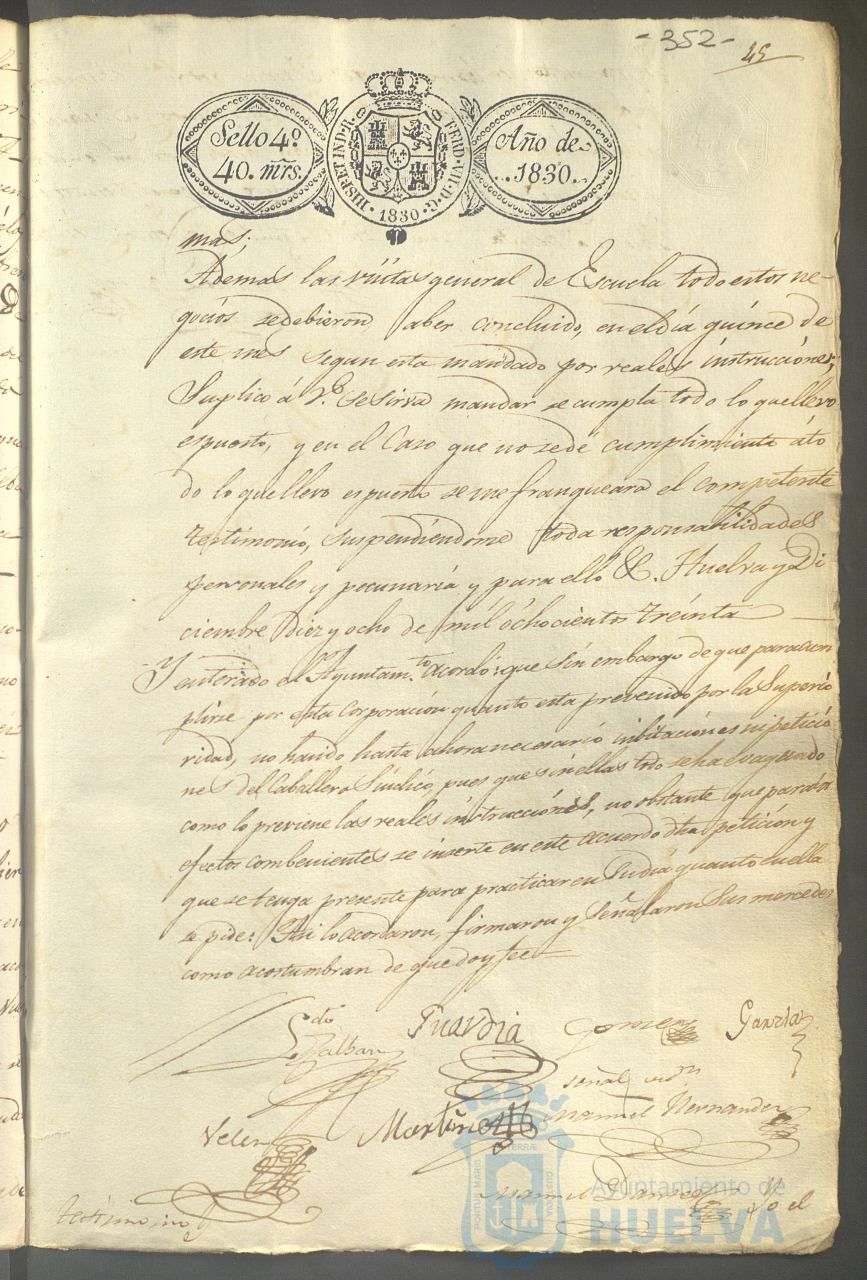 -352-
45
Sello 4º
40. mrs.
HISP. ET IND. R. FERD. VII. D. G.
1830
Año de
..1830..
mas;
Ademas las visitas general de Escuela todo estos ne-
gocios se debieron aber concluido, en el dia quince de
este mes segun esta mandado por reales instrucciones;
Suplico á V.S. se sirva mandar se cumpla todo lo que llevo
espuesto, y en el Caso que no se dé cumplimiento áto
do lo que llevo espuesto se me franqueara el competente
testimonio, suspendiendome toda responsabilidades
personales y pecunaria y para ello &. Huelva y Di
ciembre Diez y ocho de mil ochocientos treinta
Y enterado el Ayuntam.to acordó: que sin embargo de que para cum
plirse por esta Corporación quanto esta prevenido por la Superio
ridad, no haido hasta ahora necesario inbitaciones ni peticio
nes del Caballero Sindico, pues que sin ellas todo se ha
como lo previene las reales instrucciones, no obstante que para los
efectos combenientes se inserte en este acuerdo dha petición y
que se tenga presente para practicar en su dia quanto en ella
se pide: Asi lo acordaron, firmaron y señalaron sus mercedes
como acostumbran de que doy fee
Guardia
Gomez
Garzia
señal
Velez
Martinez
Manuel Hernandez
Manuel
Yo el
testimonio
PORTUS MARIS
ET TERRAE
CUSTODIA
Ayuntamiento de
HUELVA